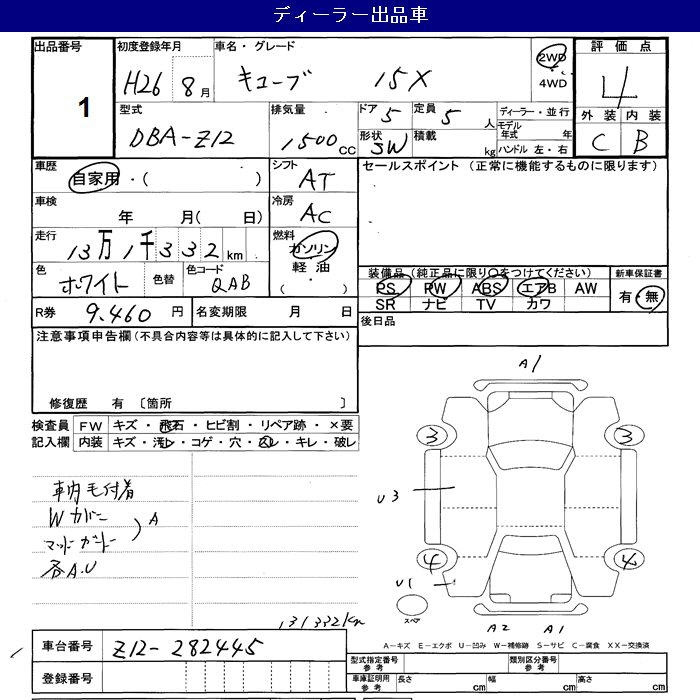 ディーラー出品車
出品番号 1
初度登録年月 H26 8月
車名・グレード キューブ 15X
2WD
4WD
評価点 4
外装 内装
C B
型式 DBA-Z12
排気量 1500cc
ドア 5 定員 5人
形状 SW 積載 kg
ディーラー・並行
モデル年式 年
ハンドル 左・右
車歴 自家用・( )
シフト AT
セールスポイント(正常に機能するものに限ります)
車検 年 月( 日)
冷房 AC
走行 13万1千332km
燃料 ガソリン
軽油
( ・ )
色 ホワイト 色替 色コード QAB
装備品(純正品に限り〇をつけてください)
PS PW ABS エアB AW
SR ナビ TV カワ
新車保証書
有・無
R券 9.460円 名変期限 月 日
後日品
注意事項申告欄(不具合内容等は具体的に記入して下さい)
修復歴 有 〔箇所 〕
検査員 FW キズ・飛石・ヒビ割・リペア跡・×要
記入欄 内装 キズ・汚レ・コゲ・穴・スレ・キレ・破レ
A1
3 3
U3
車内毛付着
Wカバー
マッドガード
A
各A.U
4 4
U1
スペア
A2 A1
131332km
A-キズ E-エクボ U-凹み W-補修跡 S-サビ C-腐食 XX-交換済
車台番号 Z12-282445
登録番号
型式指定番号 参考 類別区分番号 参考
車庫証明用 参考 長さ cm 幅 cm 高さ cm